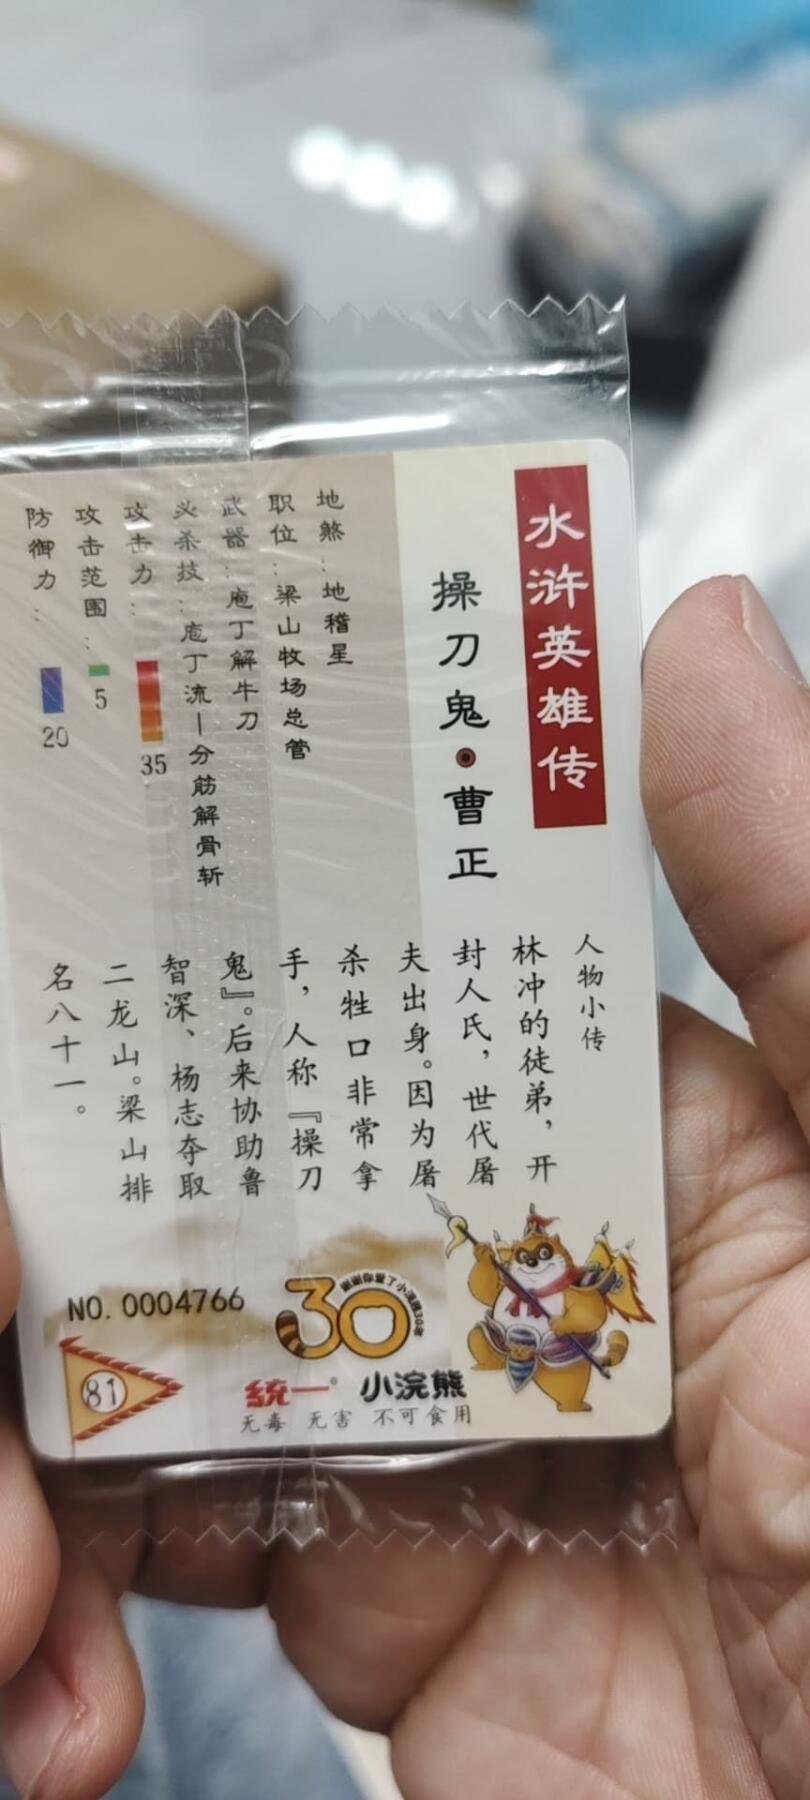 水浒英雄传
操刀鬼·曹正
地煞：地稽星
职位：梁山牧场总管
武器：庖丁解牛刀
必杀技：庖丁流—分筋解骨斩
攻击力：
35
攻击范围：
5
防御力：
20
人物小传
林冲的徒弟，开
封人氏，世代屠
夫出身。因为屠
杀牲口非常拿
手，人称『操刀
鬼』。后来协助鲁
智深、杨志夺取
二龙山。梁山排
名八十一。
NO. 0004766
谢谢你爱了小浣熊30年
30
81
統一® 小浣熊
无毒 无害 不可食用